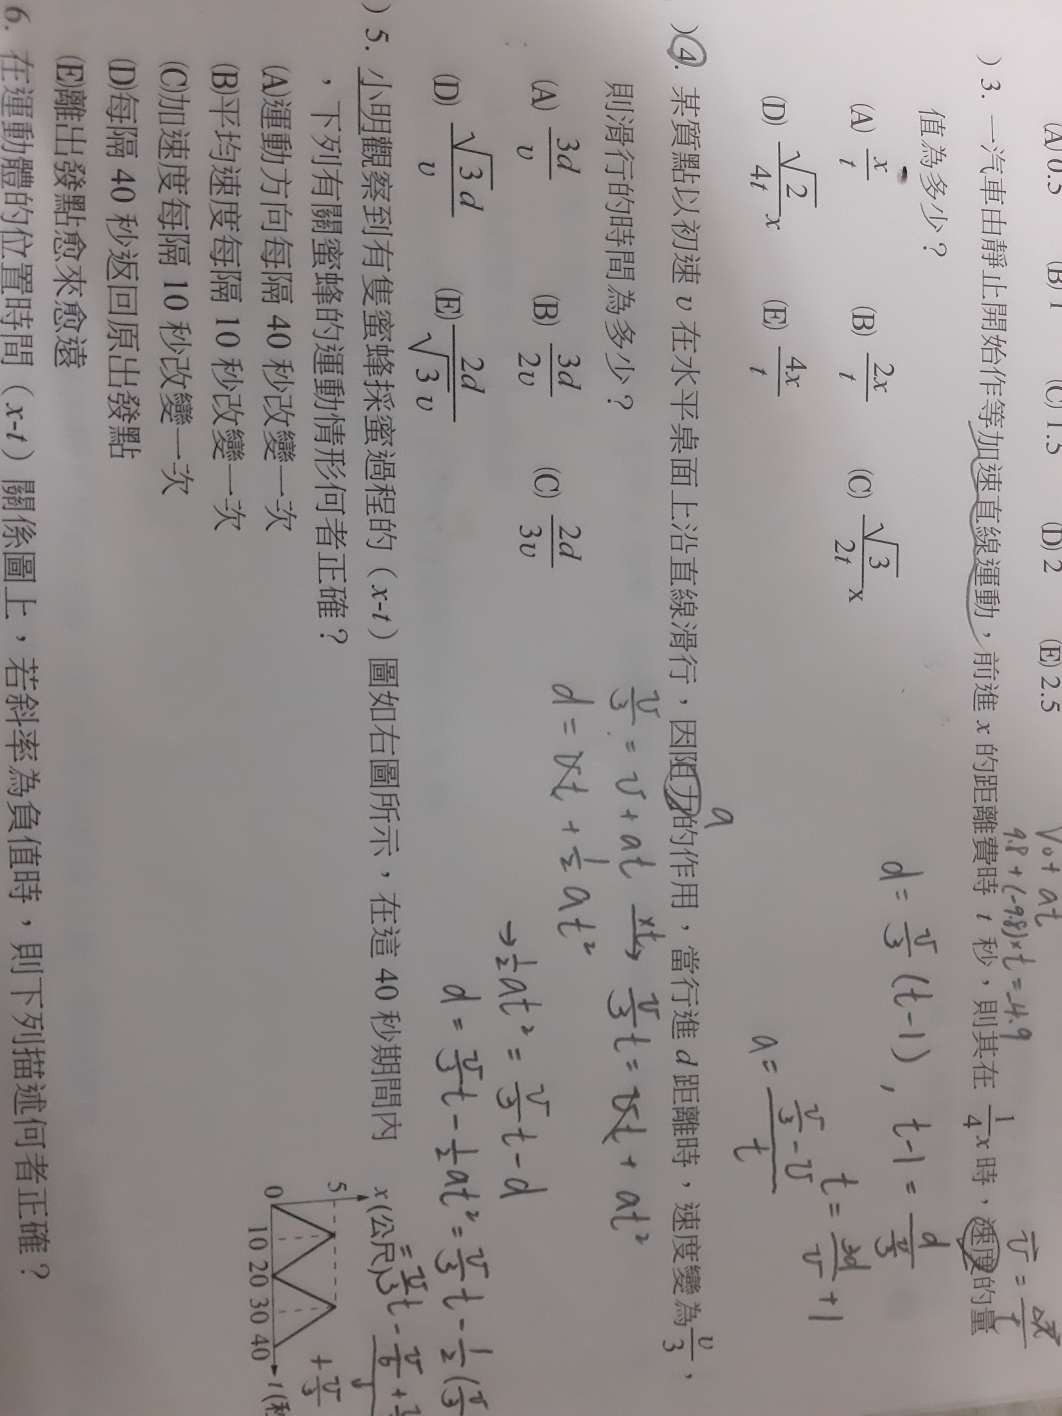 (A) 0.5 (B) (C) 1.5 (D) 2 (E) 2.5
V₀ + at
9.8 + (-9.8)×t = -4.9
) 3. 一汽車由靜止開始作等加速直線運動，前進 x 的距離費時 t 秒，則其在 1/4 x 時，速度的量
值為多少？
(A) x/t (B) 2x/t (C) √3/2t x
(D) √2/4t x (E) 4x/t
d = v/3 (t-1) , t-1 = d/(v/3)
t = 3d/v + 1
a = (v/3 - v)/t
a
) 4. 某質點以初速 v 在水平桌面上沿直線滑行，因阻力的作用，當行進 d 距離時，速度變為 v/3，
則滑行的時間為多少？
v/3 = v + at ×t→ v/3 t = vt + at²
(A) 3d/v (B) 3d/2v (C) 2d/3v
d = vt + 1/2 at²
→ 1/2 at² = v/3 t - d
(D) √3 d/v (E) 2d/√3 v
d = v/3 t - 1/2 at² = v/3 t - 1/2 (v/3
= v/3 t - v/6 +
+ v/3
) 5. 小明觀察到有隻蜜蜂採蜜過程的（x-t）圖如右圖所示，在這 40 秒期間內
，下列有關蜜蜂的運動情形何者正確？
(A)運動方向每隔 40 秒改變一次
(B)平均速度每隔 10 秒改變一次
(C)加速度每隔 10 秒改變一次
(D)每隔 40 秒返回原出發點
(E)離出發點愈來愈遠
x (公尺)
5
0
10 20 30 40
t (秒
6. 在運動體的位置時間（x-t）關係圖上，若斜率為負值時，則下列描述何者正確？